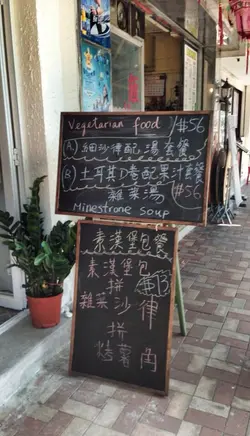 Vegetarian food /#56
(A) 細沙律配湯套餐
(B) 土耳其D巷配果汁套餐
雜菜湯 #56
Minestrone Soup
素漢堡包餐
素漢堡包
拼
雜菜沙律
拼
烤薯角